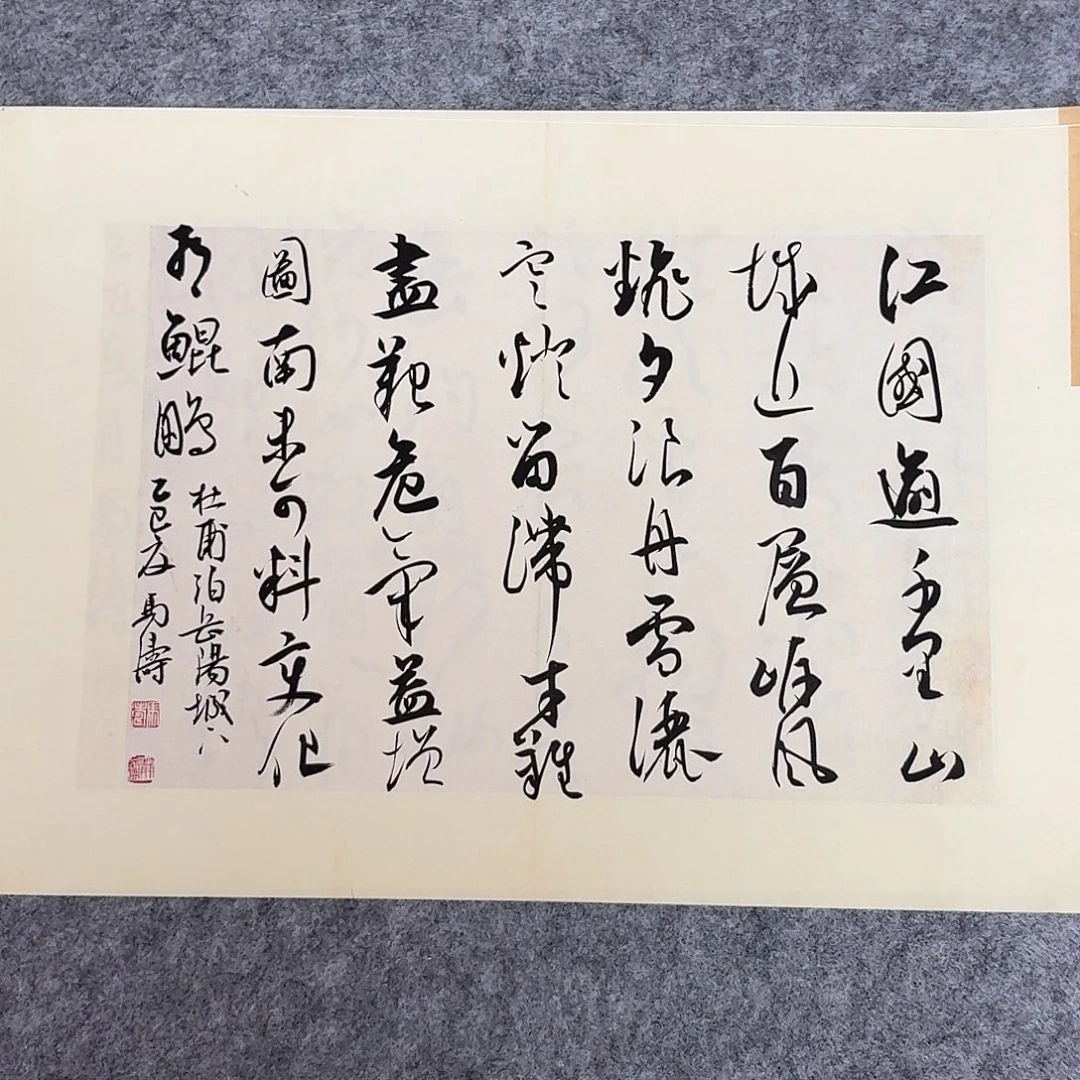 江國逾千里山
城近百層岸風
飜夕浪舟雪灑
寒燈留滯才難
盡艱危氣益增
圖南未可料變化
有鯤鵬
杜甫泊岳陽城下
乙巳 馬濤